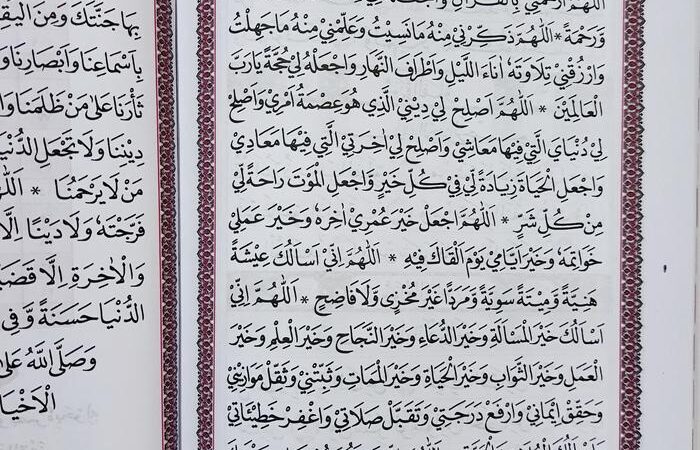 اَللّٰهُمَّ ارْحَمْنِيْ بِالْقُرْاٰنِ
وَرَحْمَةً * اَللّٰهُمَّ ذَكِّرْنِيْ مِنْهُ مَا نَسِيْتُ وَعَلِّمْنِيْ مِنْهُ مَا جَهِلْتُ
وَارْزُقْنِيْ تِلَاوَتَهٗ اٰنَاءَ اللَّيْلِ وَاَطْرَافَ النَّهَارِ وَاجْعَلْهُ لِيْ حُجَّةً يَارَبَّ
الْعَالَمِيْنَ * اَللّٰهُمَّ اَصْلِحْ لِيْ دِيْنِيْ الَّذِي هُوَ عِصْمَةُ اَمْرِيْ وَاَصْلِحْ
لِيْ دُنْيَايَ الَّتِيْ فِيْهَا مَعَاشِيْ وَاَصْلِحْ لِيْ اٰخِرَتِيْ الَّتِيْ فِيْهَا مَعَادِيْ
وَاجْعَلِ الْحَيَاةَ زِيَادَةً لِيْ فِيْ كُلِّ خَيْرٍ وَاجْعَلِ الْمَوْتَ رَاحَةً لِّيْ
مِنْ كُلِّ شَرٍّ * اَللّٰهُمَّ اجْعَلْ خَيْرَ عُمْرِيْ اٰخِرَهٗ وَخَيْرَ عَمَلِيْ
خَوَاتِمَهٗ وَخَيْرَ اَيَّامِيْ يَوْمَ اَلْقَاكَ فِيْهِ * اَللّٰهُمَّ اِنِّيْ اَسْاَلُكَ عِيْشَةً
هَنِيَّةً وَمِيْتَةً سَوِيَّةً وَمَرَدًّا غَيْرَ مُخْزِيٍ وَّلَا فَاضِحٍ * اَللّٰهُمَّ اِنِّيْ
اَسْاَلُكَ خَيْرَ الْمَسْاَلَةِ وَخَيْرَ الدُّعَاءِ وَخَيْرَ النَّجَاحِ وَخَيْرَ الْعِلْمِ وَخَيْرَ
الْعَمَلِ وَخَيْرَ الثَّوَابِ وَخَيْرَ الْحَيَاةِ وَخَيْرَ الْمَمَاتِ وَثَبِّتْنِيْ وَثَقِّلْ مَوَازِيْنِيْ
وَحَقِّقْ اِيْمَانِيْ وَارْفَعْ دَرَجَتِيْ وَتَقَبَّلْ صَلَاتِيْ وَاغْفِرْ خَطِيْئَاتِيْ
بِهَا جَنَّتَكَ وَمِنَ
بِاَسْمَاعِنَا وَاَبْصَارِنَا
ثَأْرَنَا عَلٰى مَنْ ظَلَمَنَا
دِيْنِنَا وَلَا تَجْعَلِ الدُّنْيَا
مَنْ لَا يَرْحَمُنَا *
فَرَّجْتَهٗ وَلَا دَيْنًا اِلَّا
وَالْاٰخِرَةِ اِلَّا
الدُّنْيَا حَسَنَةً وَّفِي
وَصَلَّى اللّٰهُ عَلٰى